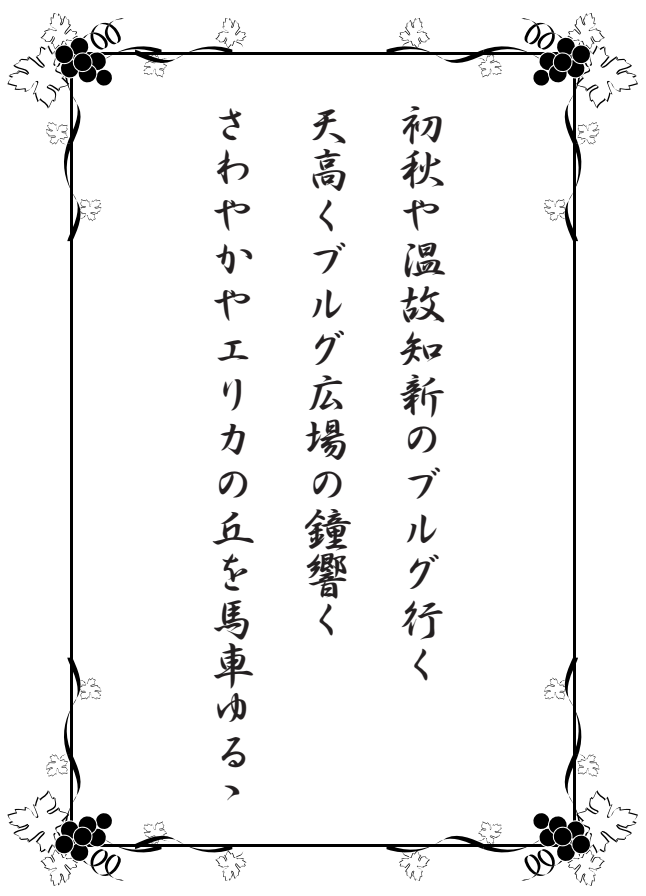 初秋や温故知新のブルグ行く
天高くブルグ広場の鐘響く
さわやかやエリカの丘を馬車ゆるヽ